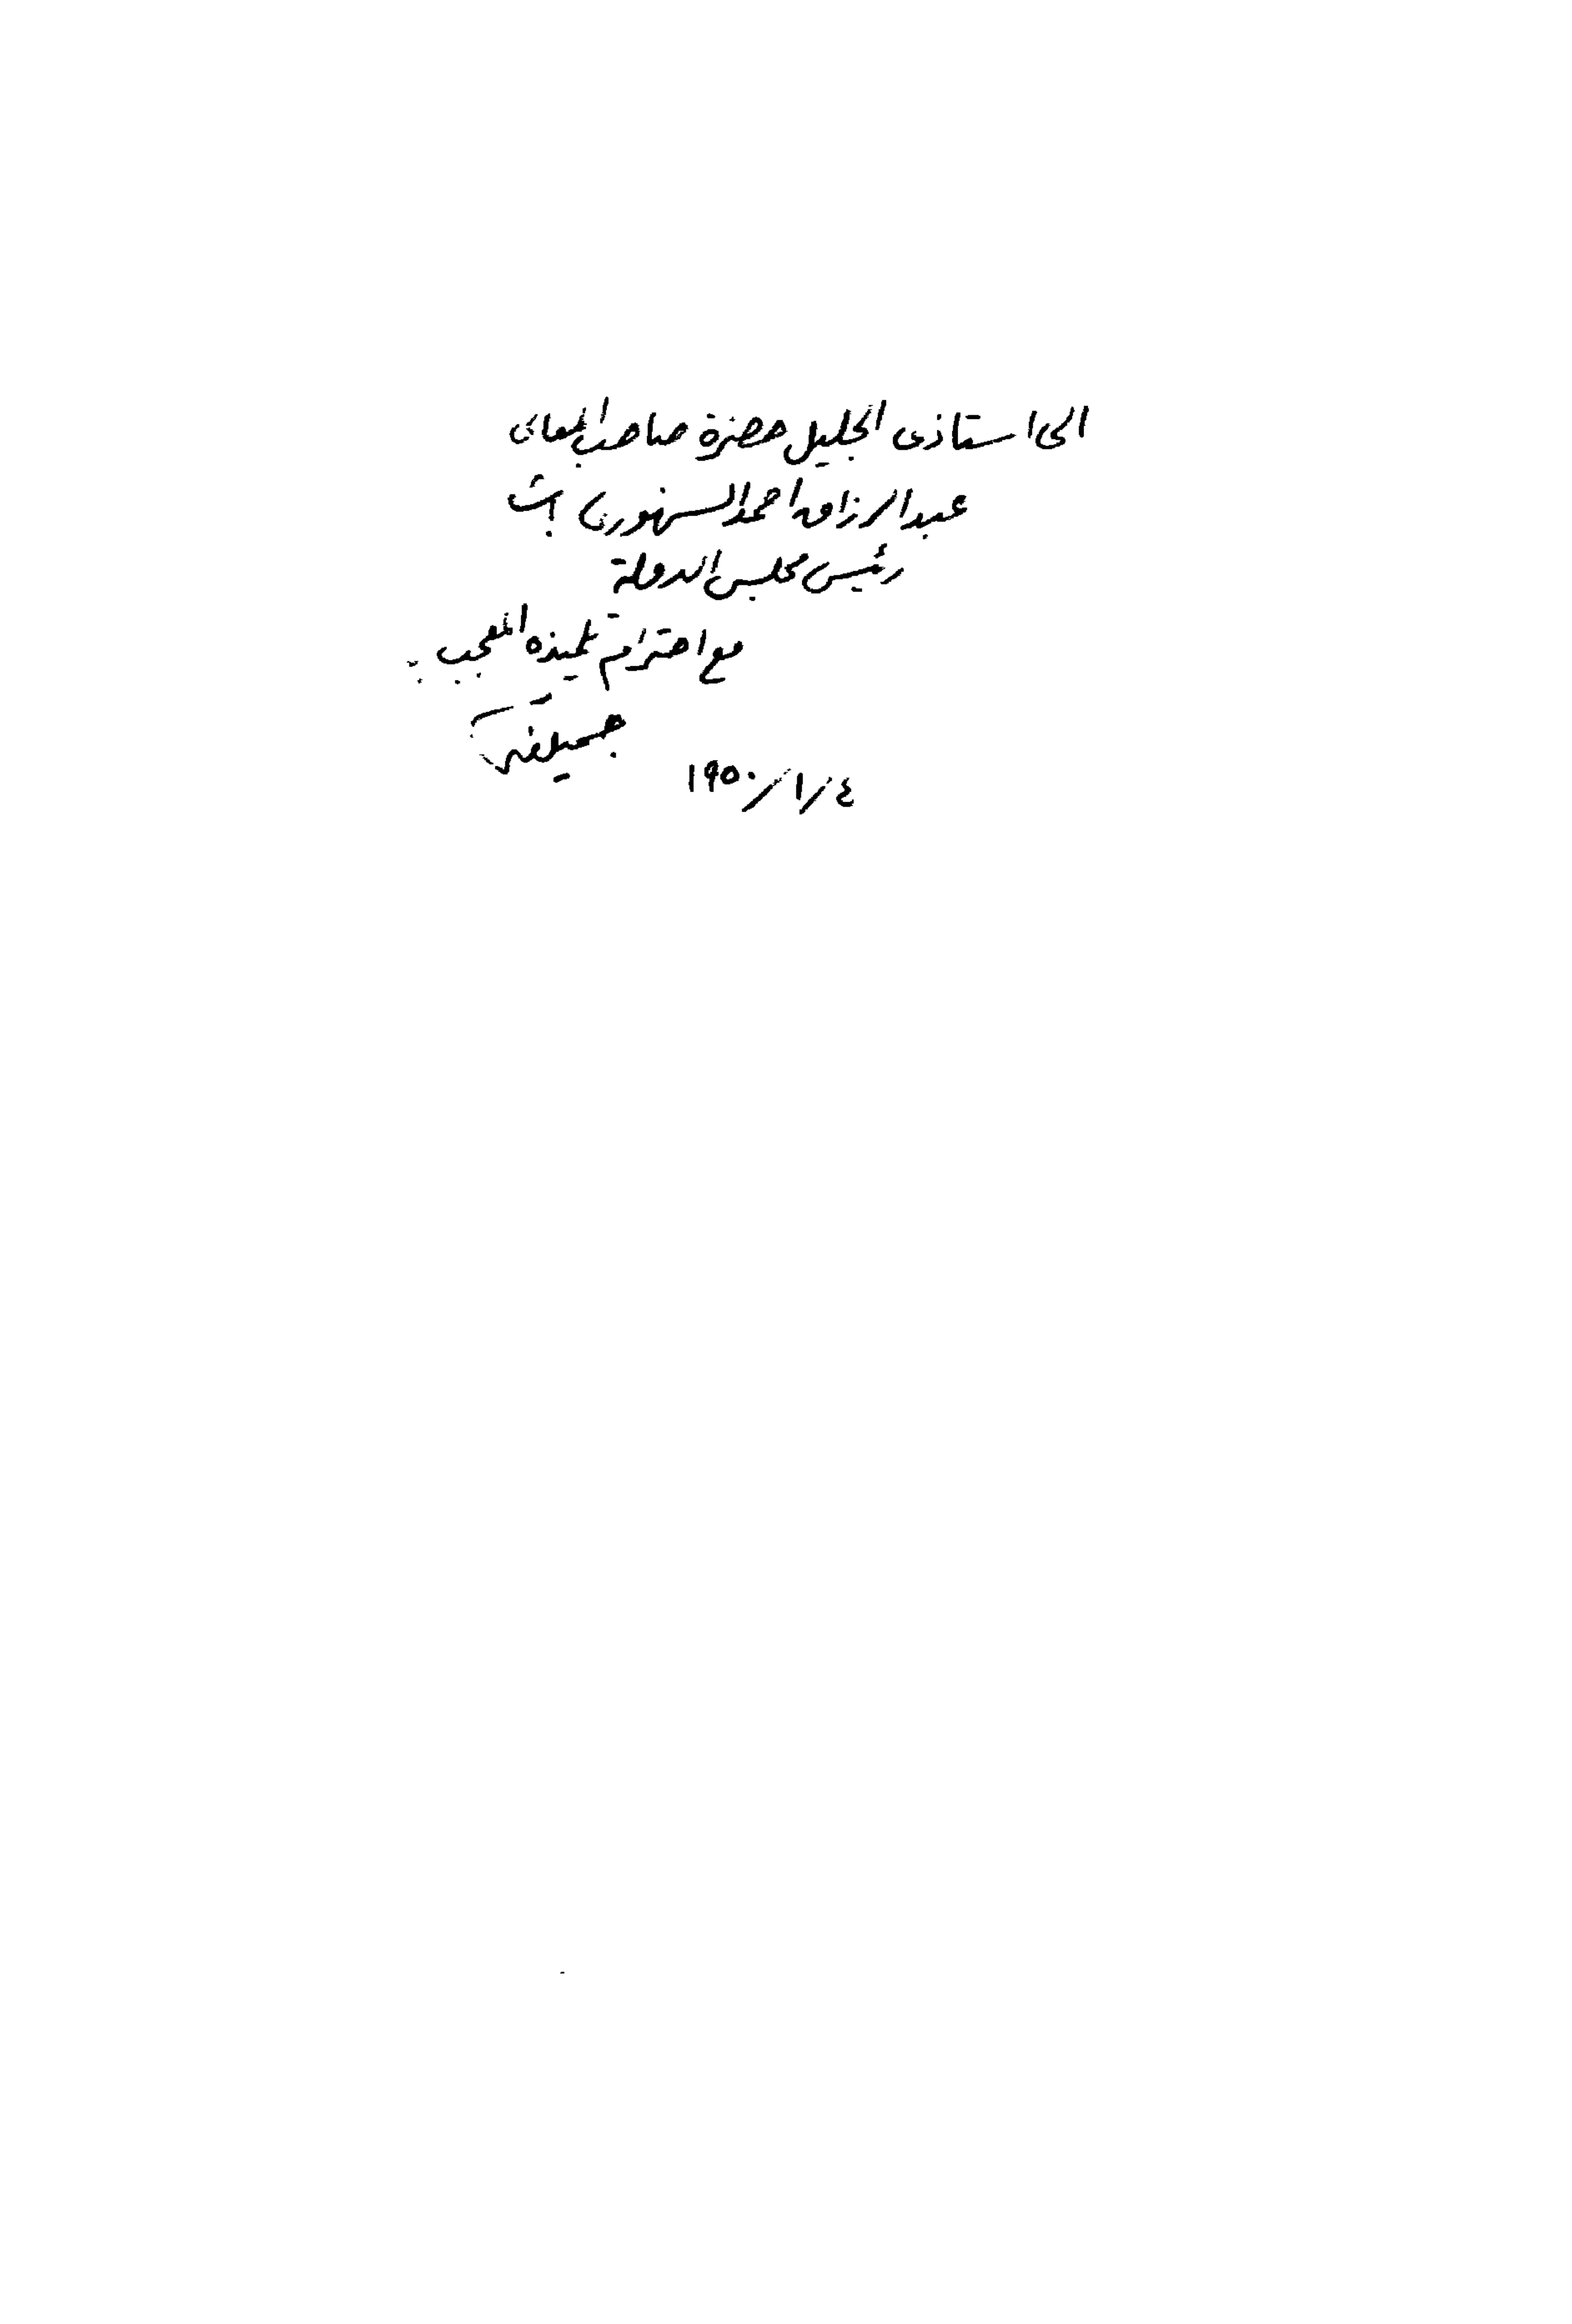 الى استاذى الجليل حضرة صاحب المعالى
عبد الرزاق احمد السنهورى باشا
رئيس مجلس الدولة
مع احترام تلميذه المعجب
٤/١/١٩٥٠